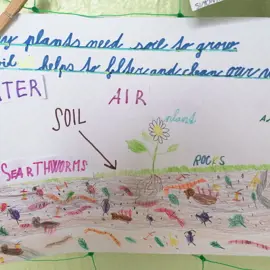 plants need soil to grow.
helps to filter and clean our
AIR
SOIL
plant
EARTHWORMS
ROCKS